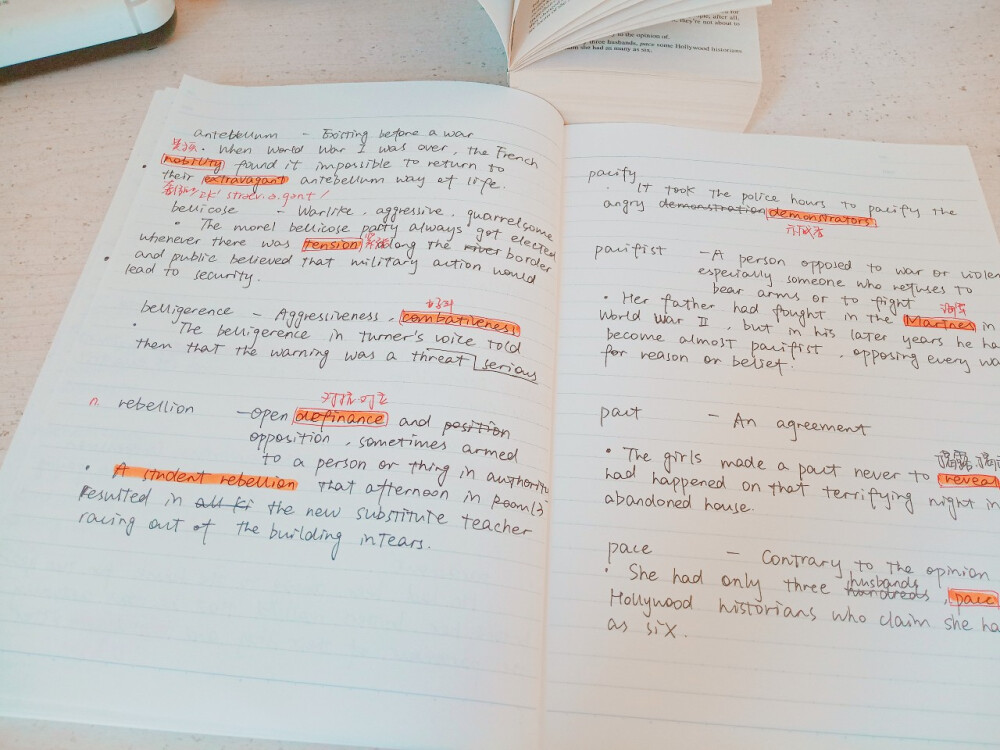 people, after all,
they're not about to
to the opinion of.
three husbands, pace some Hollywood historians
she had as many as six.
antebellum - Existing before a war
贵族 · When World War I was over, the French
nobility found it impossible to return to
their extravagant antebellum way of life.
bellicose - Warlike, aggressive, quarrelsome
· The morel bellicose party always got elected
whenever there was tension 紧张 along the river border
and public believed that military action would
lead to security.
好斗
belligerence - Aggressiveness, combativeness
· The belligerence in turner's voice told
them that the warning was a threat serious
对抗
n. rebellion - Open definance and position
opposition, sometimes armed
to a person or thing in authority
· A student rebellion that afternoon in room 13
Resulted in all the new substitute teacher
racing out of the building in tears.
pacify
· It took the police hours to pacify the
angry demonstration demonstrators
示威者
pacifist - A person opposed to war or violen
especially someone who refuses to
bear arms or to fight
· Her father had fought in the Marines in
World War II, but in his later years he ha
become almost pacifist, opposing every wa
for reason or belief.
pact - An agreement
揭露
· The girls made a pact never to reveal
had happened on that terrifying night in
abandoned house.
pace - Contrary to the opinion
husbands
· She had only three hundreds, pace
Hollywood historians who claim she ha
as six.